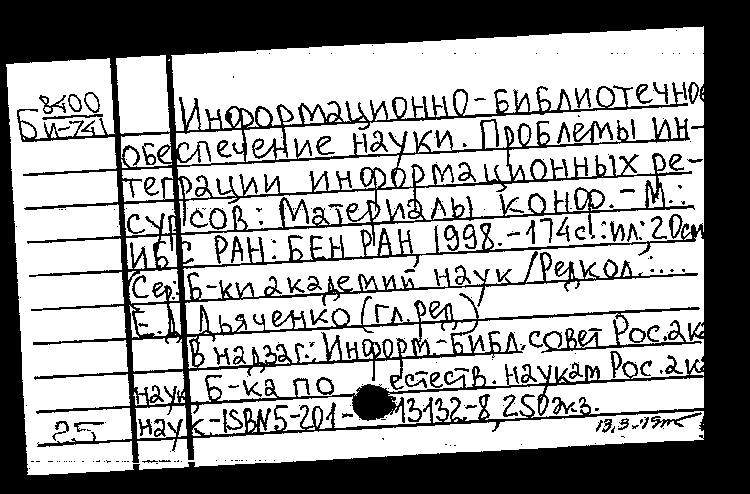 Б 8400
И-741
Информационно-библиотечное
обеспечение науки. Проблемы ин-
теграции информационных ре-
сурсов: Материалы конф. - М.:
ИБС РАН: БЕН РАН, 1998. - 174с.: ил; 20см
(Сер.: Б-ки академий наук / Редкол.: ...
Е.Д. Дьяченко (гл. ред.)
В надзаг.: Информ.-библ. совет Рос. ака
наук, Б-ка по естеств. наукам Рос. ака
25 наук. - ISBN 5-201-13132-8, 250экз.